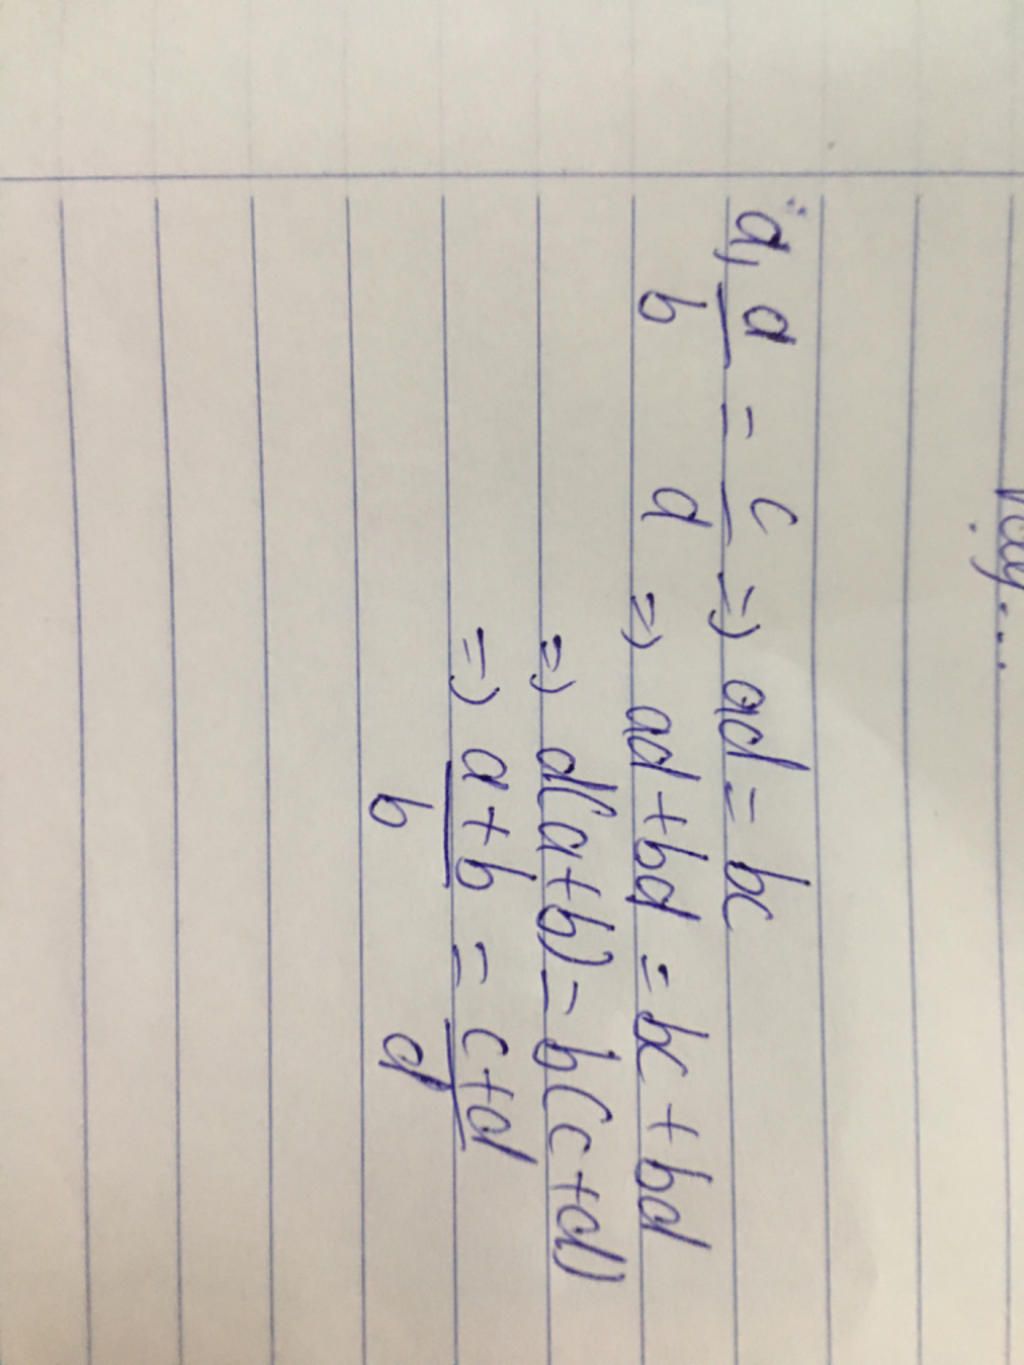 Vậy...
a, a/b = c/d => ad = bc
=> ad + bd = bc + bd
=> d(a+b) = b(c+d)
=> a+b/b = c+d/d